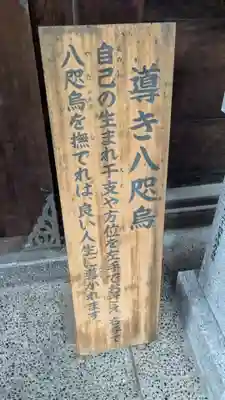 導き八咫烏
自己の生まれ干支や方位を左手でお押え、右手で
八咫烏を撫でれば、良い人生に導かれます